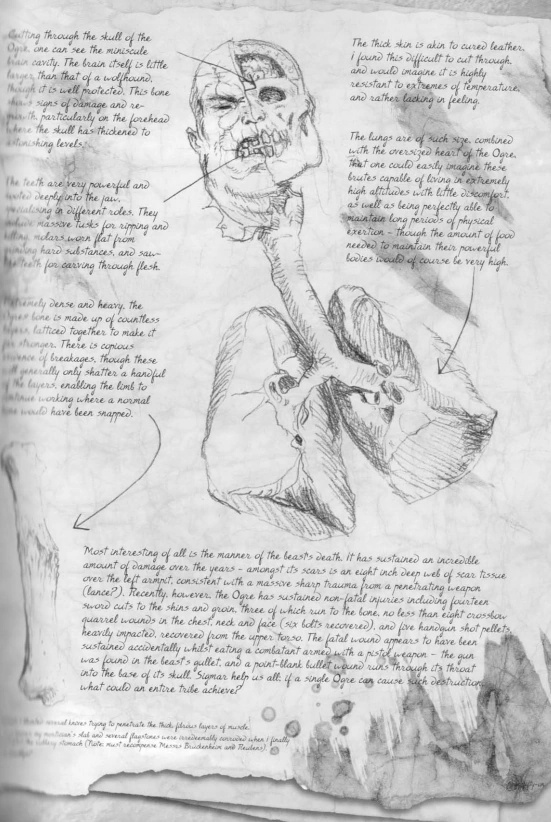 Cutting through the skull of the
Ogre, one can see the miniscule
brain cavity. The brain itself is little
larger than that of a wolfhound,
though it is well protected. This bone
shows signs of damage and re-
growth, particularly on the forehead
where the skull has thickened to
astonishing levels.
The teeth are very powerful and
rooted deeply into the jaw,
specialising in different roles. They
include massive tusks for ripping and
killing, molars worn flat from
grinding hard substances, and saw-
like teeth for carving through flesh.
Extremely dense and heavy, the
Ogre's bone is made up of countless
layers, latticed together to make it
far stronger. There is copious
evidence of breakages, though these
will generally only shatter a handful
of the layers, enabling the limb to
continue working where a normal
bone would have been snapped.
The thick skin is akin to cured leather.
I found this difficult to cut through,
and would imagine it is highly
resistant to extremes of temperature,
and rather lacking in feeling.
The lungs are of such size, combined
with the oversized heart of the Ogre,
that one could easily imagine these
brutes capable of living in extremely
high altitudes with little discomfort,
as well as being perfectly able to
maintain long periods of physical
exertion - though the amount of food
needed to maintain their powerful
bodies would of course be very high.
"Most interesting of all is the manner of the beast's death. It has sustained an incredible
amount of damage over the years - amongst its scars is an eight inch deep web of scar tissue
over the left armpit, consistent with a massive sharp trauma from a penetrating weapon
(lance?). Recently, however, the Ogre has sustained non-fatal injuries including fourteen
sword cuts to the shins and groin, three of which run to the bone, no less than eight crossbow
quarrel wounds in the chest, neck and face (six bolts recovered), and five handgun shot pellets,
heavily impacted, recovered from the upper torso. The fatal wound appears to have been
sustained accidentally whilst eating a combatant armed with a pistol weapon - the gun
was found in the beast's gullet, and a point-blank bullet wound runs through its throat
into the base of its skull. Sigmar help us all: if a single Ogre can cause such destruction,
what could an entire tribe achieve?"
several knives trying to penetrate the thick fibrous layers of muscle.
my mortician's slab and several flagstones were irredeemably corroded when I finally
stomach (Note: must recompense Messrs Bruckenheim and Reubens).